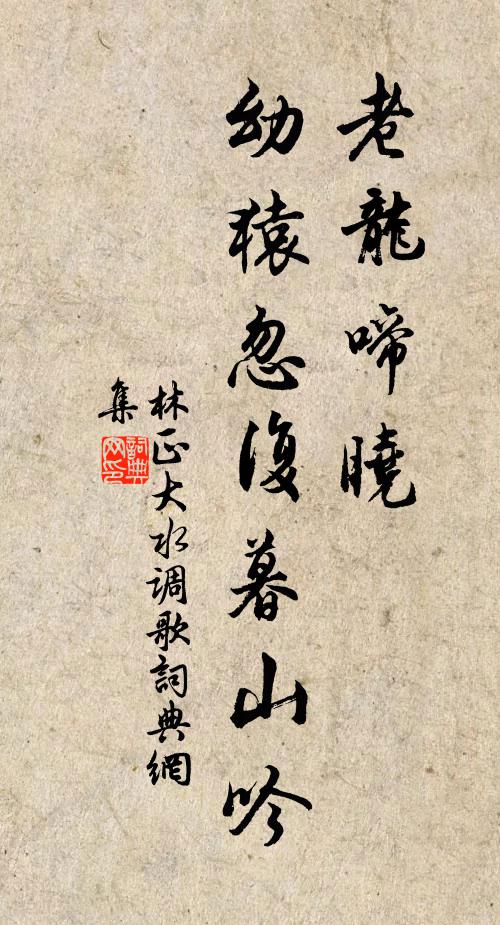 老龍啼曉
幼猿忽復暮山吟
林正大水调歌詞典網
集
詞典网印